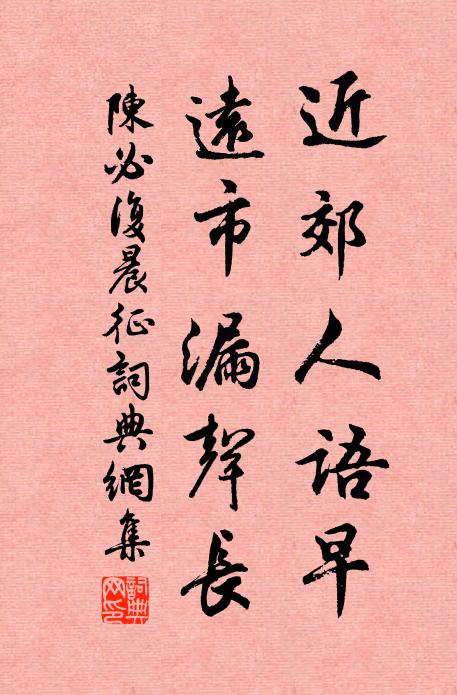 近郊人語早
遠市漏聲長
陳必復晨征詞典網集
詞典網印